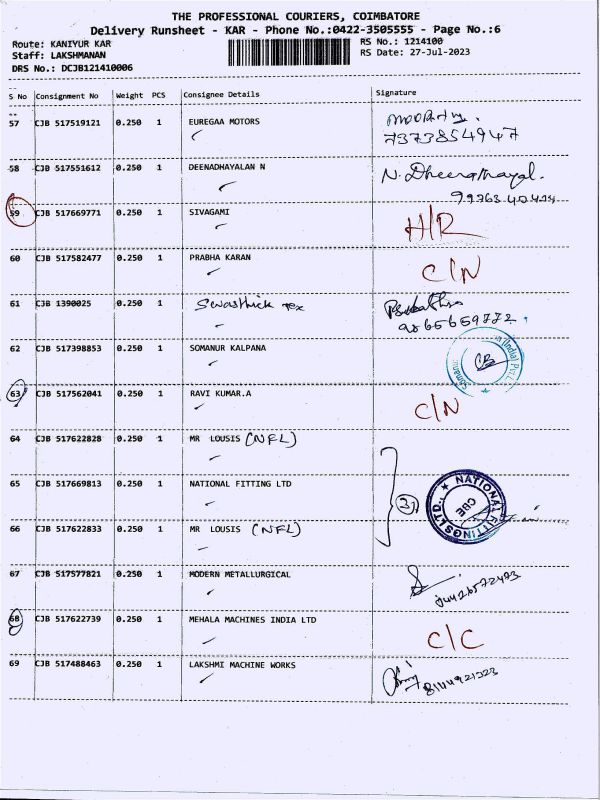 THE PROFESSIONAL COURIERS, COIMBATORE
Delivery Runsheet - KAR - Phone No.:0422-3505555 - Page No.:6
Route: KANIYUR KAR RS No.: 1214100
Staff: LAKSHMANAN RS Date: 27-Jul-2023
DRS No.: DCJB121410006
S No Consignment No Weight PCS Consignee Details Signature
57 CJB 517519121 0.250 1 EUREGAA MOTORS
7373854947
58 CJB 517551612 0.250 1 DEENADHAYALAN N N. Dheenathayal.
59 CJB 517669771 0.250 1 SIVAGAMI H/R
60 CJB 517582477 0.250 1 PRABHA KARAN C/N
61 CJB 1390025 0.250 1 Swasthick tex
9865659772
62 CJB 517398853 0.250 1 SOMANUR KALPANA
63 CJB 517562041 0.250 1 RAVI KUMAR.A C/N
64 CJB 517622828 0.250 1 MR LOUSIS (NFL)
65 CJB 517669813 0.250 1 NATIONAL FITTING LTD 3 NATIONAL FITTINGS LTD. CBE
66 CJB 517622833 0.250 1 MR LOUSIS (NFL)
67 CJB 517577821 0.250 1 MODERN METALLURGICAL
68 CJB 517622739 0.250 1 MEHALA MACHINES INDIA LTD C/C
69 CJB 517488463 0.250 1 LAKSHMI MACHINE WORKS